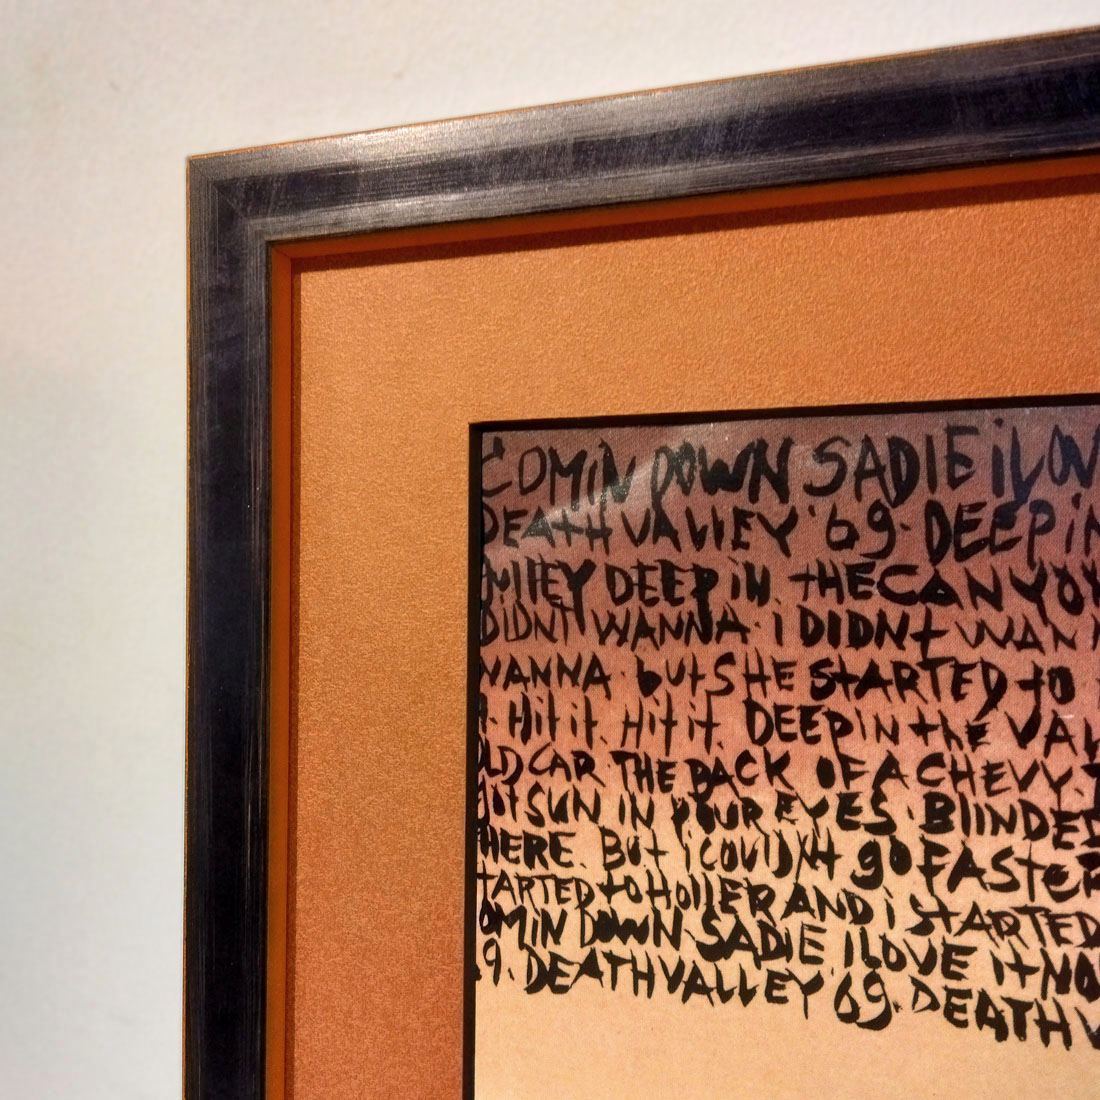 COMiN DOWN SADIE iLOV
DEATH VALLEY '69. DEEPiN
DEEP iN. tHE CANYO
DIDNT WANNA. i DIDNt WAN
WANNA. butSHE StARTED tO
Hit it. Hit it. DEEPiN thE VAL
OLD CAR THE BACK OF A CHEVY.
SUN IN YOUR EYES. BlINDED
HERE. But i COUlDN't gO FASTER
TARTED tO HOllER AND i StARTED
OMiN DOWN SADIE ILOVE it NO
69. DEATH VALLEY '69. DEATH V